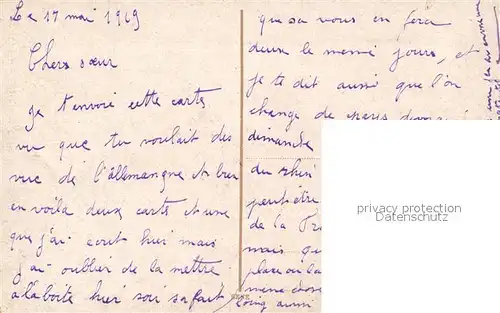 Le 17 mai 1919
Chers sœur
Je t'envoie cette carte
vu que tu voulait des
vue de l'âllemangne et bien
en voila deux carte et une
que j'ai ecrit hier mais
j'ai oublier de la mettre
a la boite hier soir sa fait
que sa vous en fera
deux le meme jours, et
je te dit aussi que l'on
change de
dimanche
du rhin
peut être
de la
mais qu
place ou la
meme chose
aussi
privacy protection
Datenschutz